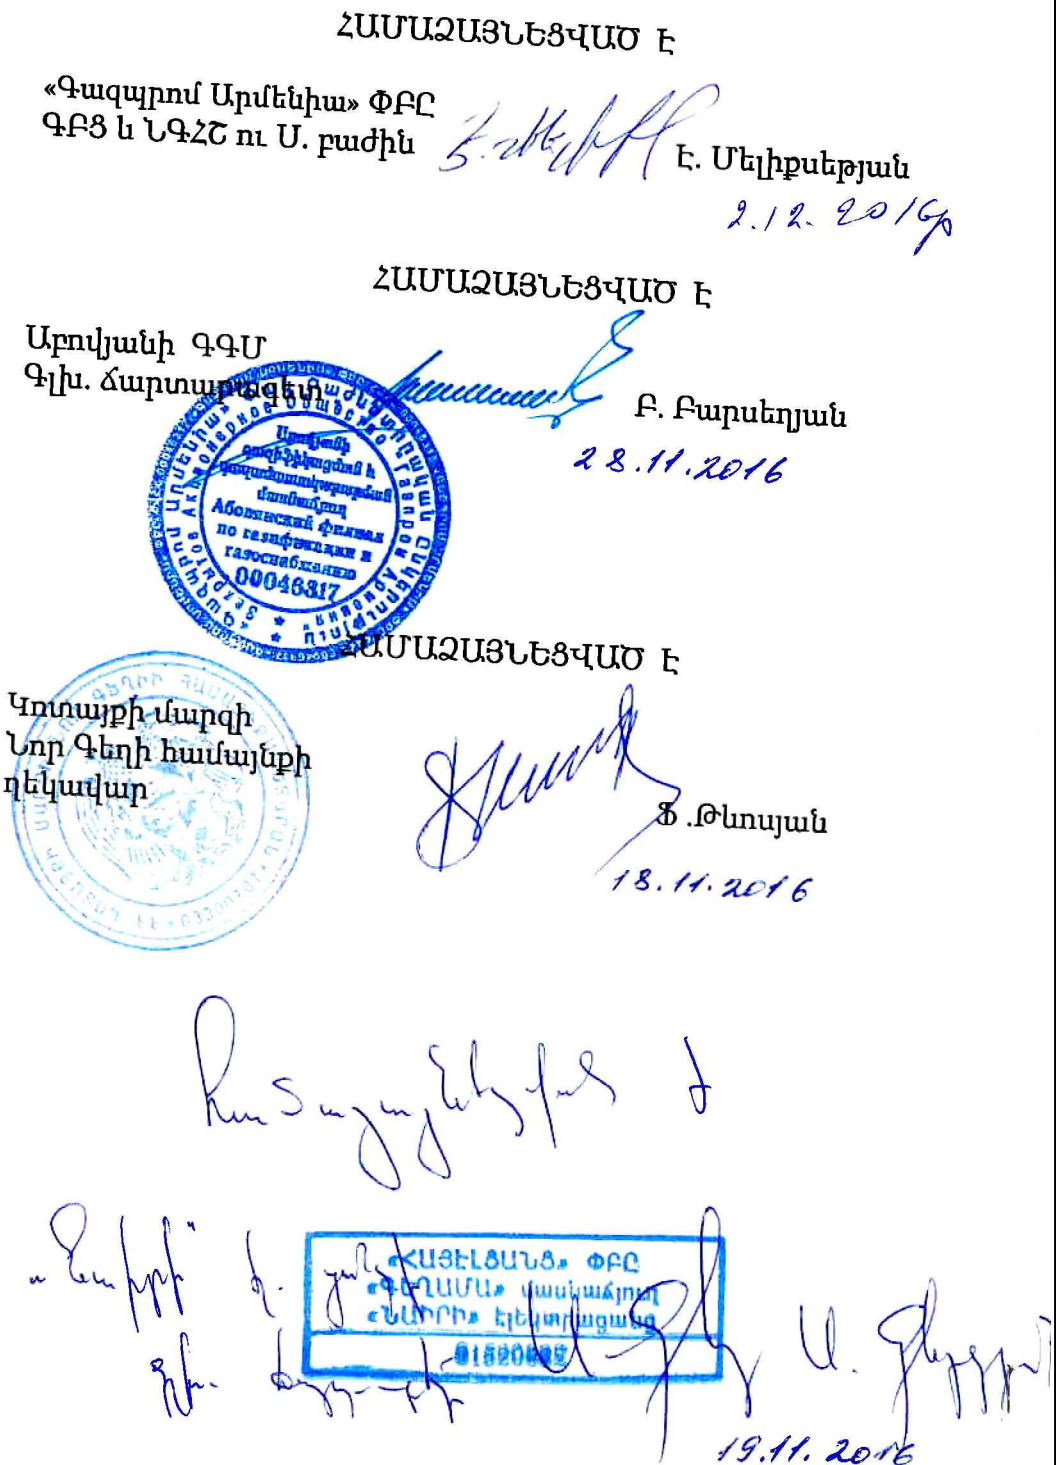 ՀԱՄԱՁԱՅՆԵՑՎԱԾ Է
«Գազպրոմ Արմենիա» ՓԲԸ
ԳԲՑ և ՆԳՀՇ ու Ս. բաժին
Է. Մելիքսեթյան
2.12.2016թ
ՀԱՄԱՁԱՅՆԵՑՎԱԾ Է
Աբովյանի ԳԳՄ
Գլխ. ճարտարագետ
Բ. Բարսեղյան
28.11.2016
Աբովյանի
գազիֆիկացման և
գազամատակարարման
մասնաճյուղ
Абовянский филиал
по газификации и
газоснабжению
00046317
ՀԱՄԱՁԱՅՆԵՑՎԱԾ Է
Կոտայքի մարզի
Նոր Գեղի համայնքի
ղեկավար
Ֆ .Թևոսյան
18.11.2016
Համաձայնեցված է
«Նաիրի»
«ՀԱՅԷԼՑԱՆՑ» ՓԲԸ
«ԳԵՂԱՄԱ» մասնաճյուղ
«ՆԱԻՐԻ» էլեկտրացանց
գլխ.
Ա.
19.11.2016